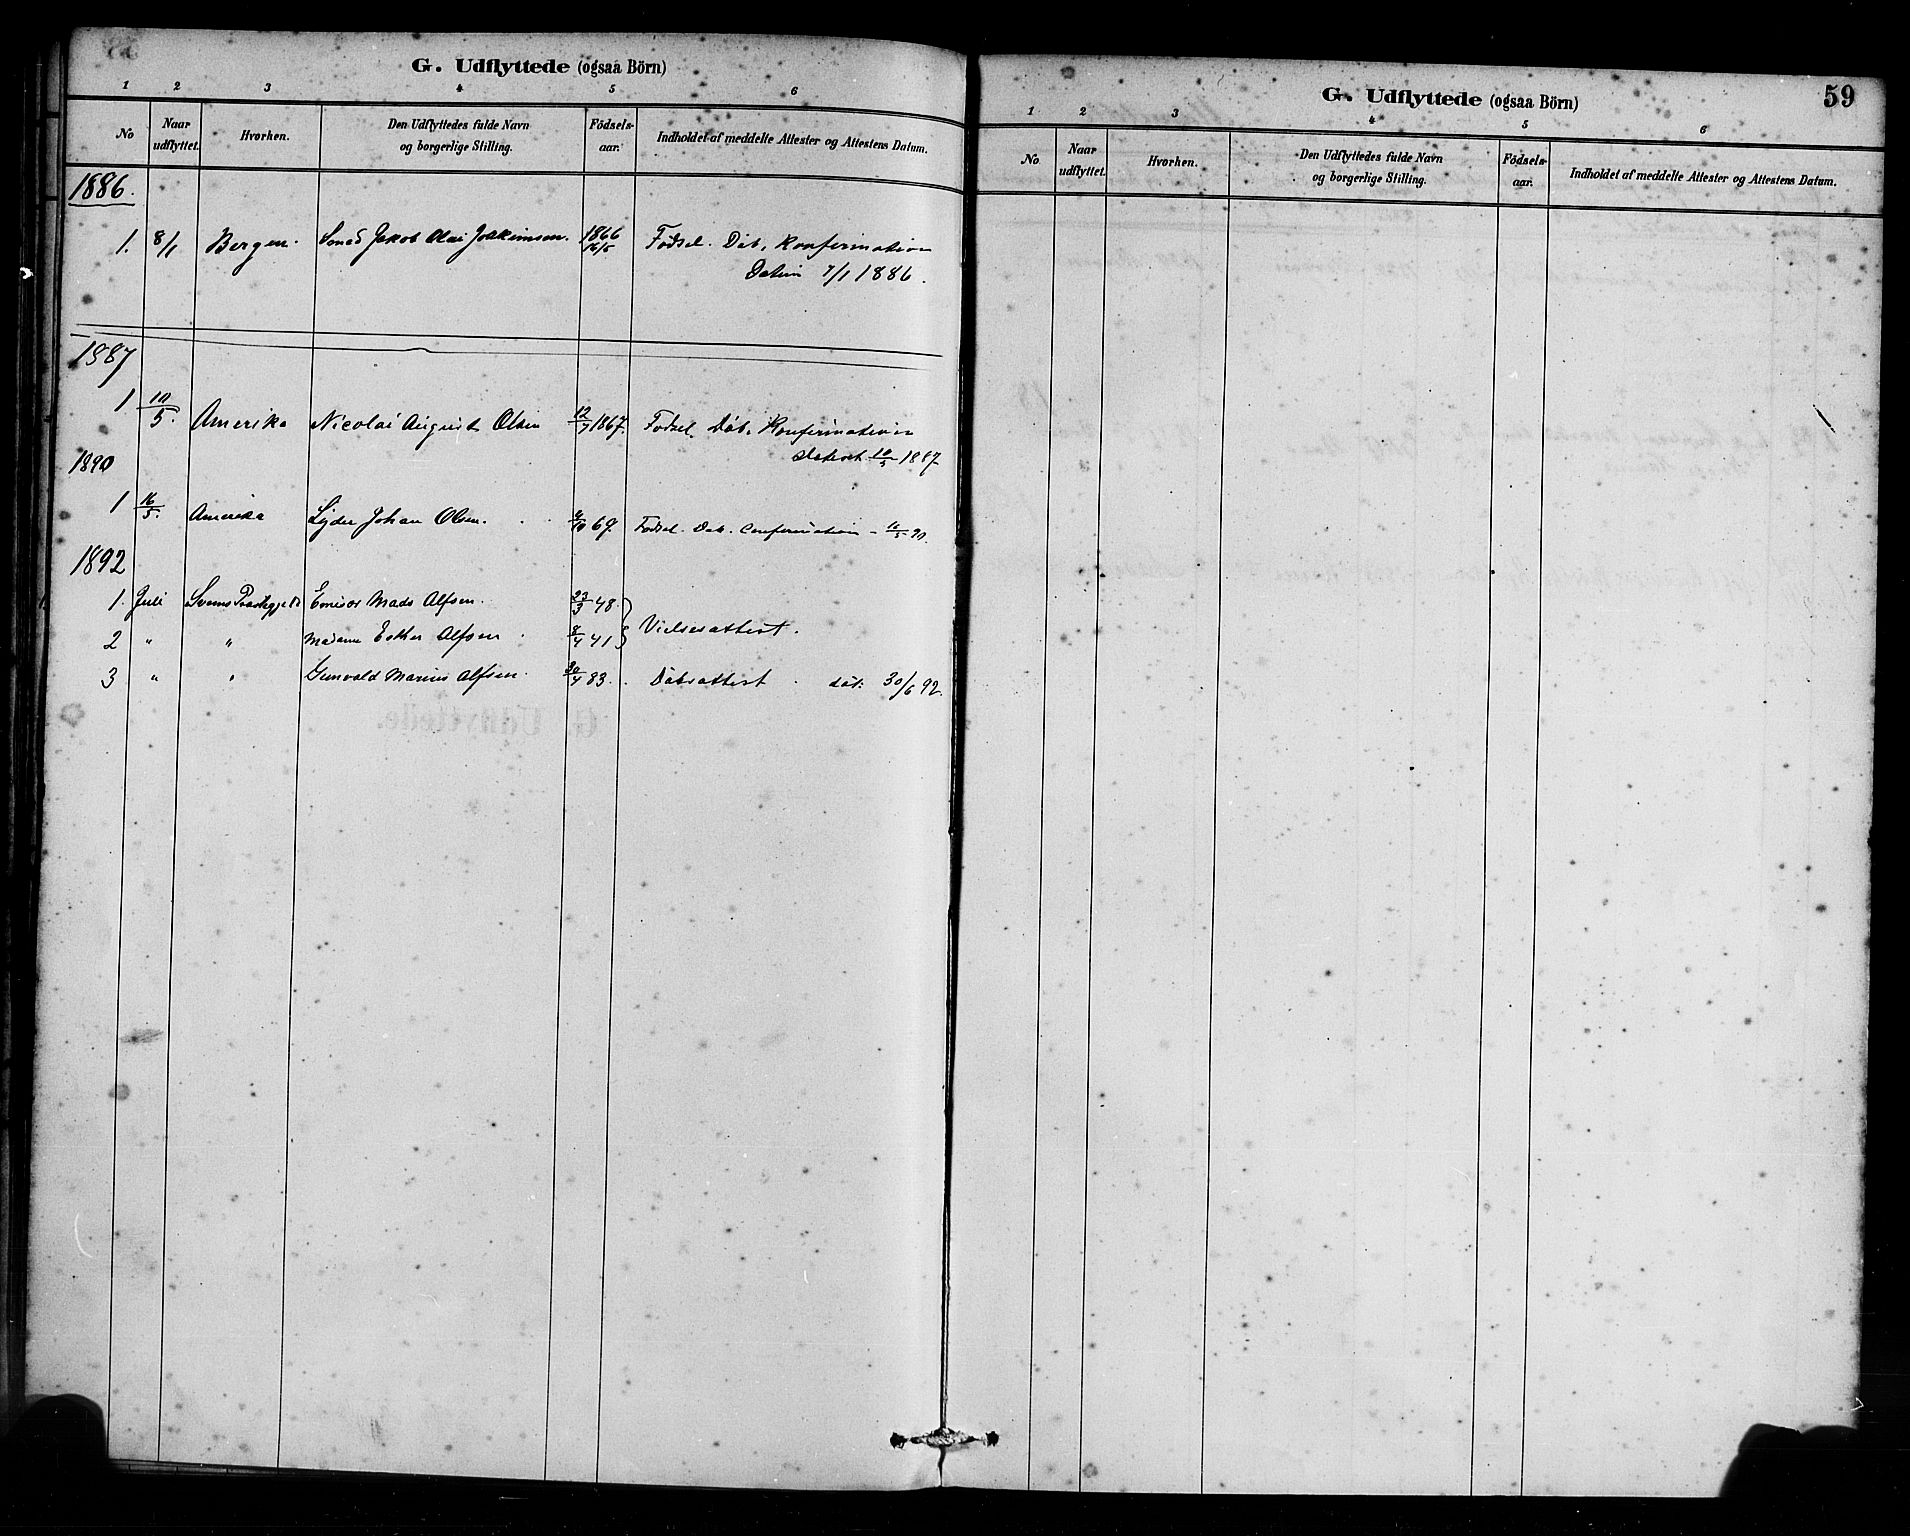 G. Udflyttede (ogsaa Börn)
1 2 3 4 5 6
No Naar udflyttet. Hvorhen. Den Udflyttedes fulde Navn og borgerlige Stilling. Födsels-aar. Indholdet af meddelte Attester og Attestens Datum.
1886.
1. 8/1 Bergen. Jakob Olai Joakimsen. 1866 16/5 Födsel. Dåb, Konfirmation
Datum 7/1 1886.
1887
1 10/5. Amerika Nicolai August Olsen 12/7 1867. Födsel. Dåb, Konfirmation
dateret 10/5 1887
1890
1 16/5. Amerika Johan Olsen. 69 Födsel. Dåb. Confirmation - 90.
1892
1. Juli Svems Præstegjeld Mads Alfsen. 23/3 48. Vielsesattest.
2 " " Madame Esther Alfsen 8/4 41
3 " " Gunvald Marius Alfsen. 30/4 83. Dåbsattest. dat: 30/6 92.
G. Udflyttede (ogsaa Börn) 59
1 2 3 4 5 6
No Naar udflyttet. Hvorhen. Den Udflyttedes fulde Navn og borgerlige Stilling. Födsels-aar. Indholdet af meddelte Attester og Attestens Datum.